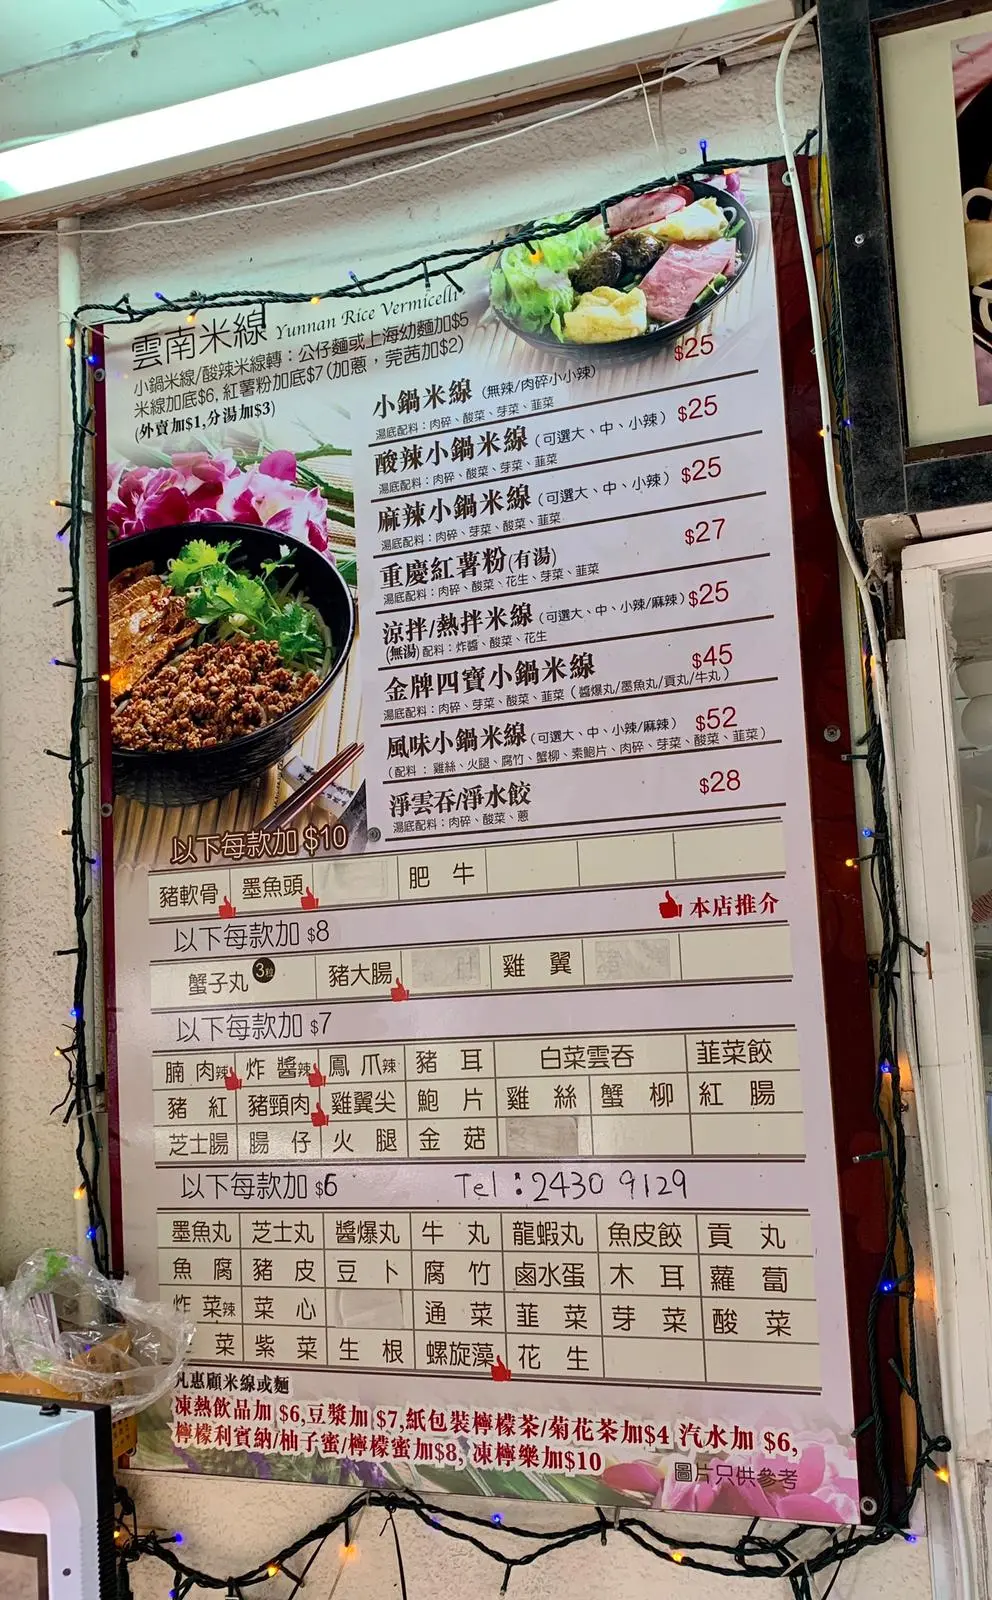 雲南米線 Yunnan Rice Vermicelli
小鍋米線/酸辣米線轉：公仔麵或上海幼麵加$5
米線加底$6, 紅薯粉加底$7 (加蔥，芫茜加$2)
(外賣加$1,分湯加$3)
小鍋米線 (無辣/肉碎小小辣) $25
湯底配料：肉碎、酸菜、芽菜、韮菜
酸辣小鍋米線 (可選大、中、小辣) $25
湯底配料：肉碎、酸菜、芽菜、韮菜
麻辣小鍋米線 (可選大、中、小辣) $25
湯底配料：肉碎、芽菜、酸菜、韮菜
重慶紅薯粉(有湯) $27
湯底配料：肉碎、酸菜、花生、芽菜、韮菜
涼拌/熱拌米線 (可選大、中、小辣/麻辣) $25
(無湯) 配料：炸醬、酸菜、花生
金牌四寶小鍋米線 $45
湯底配料：肉碎、芽菜、酸菜、韮菜 ( 醬爆丸/墨魚丸/貢丸/牛丸 )
風味小鍋米線 (可選大、中、小辣/麻辣) $52
(配料：雞絲、火腿、腐竹、蟹柳、素鮑片、肉碎、芽菜、酸菜、韮菜)
淨雲吞/淨水餃 $28
湯底配料：肉碎、酸菜、蔥
以下每款加 $10
豬軟骨 墨魚頭 肥牛
本店推介
以下每款加 $8
蟹子丸 3粒 豬大腸 雞翼
以下每款加 $7
腩肉辣 炸醬辣 鳳爪辣 豬耳 白菜雲吞 韮菜餃
豬紅 豬頸肉 雞翼尖 鮑片 雞絲 蟹柳 紅腸
芝士腸 腸仔 火腿 金菇
以下每款加 $6 Tel：2430 9129
墨魚丸 芝士丸 醬爆丸 牛丸 龍蝦丸 魚皮餃 貢丸
魚腐 豬皮 豆卜 腐竹 鹵水蛋 木耳 蘿蔔
炸菜辣 菜心 通菜 韮菜 芽菜 酸菜
菜 紫菜 生根 螺旋藻 花生
凡惠顧米線或麵
凍熱飲品加 $6,豆漿加 $7,紙包裝檸檬茶/菊花茶加$4 汽水加 $6,
檸檬利賓納/柚子蜜/檸檬蜜加$8, 凍檸樂加$10
圖片只供參考